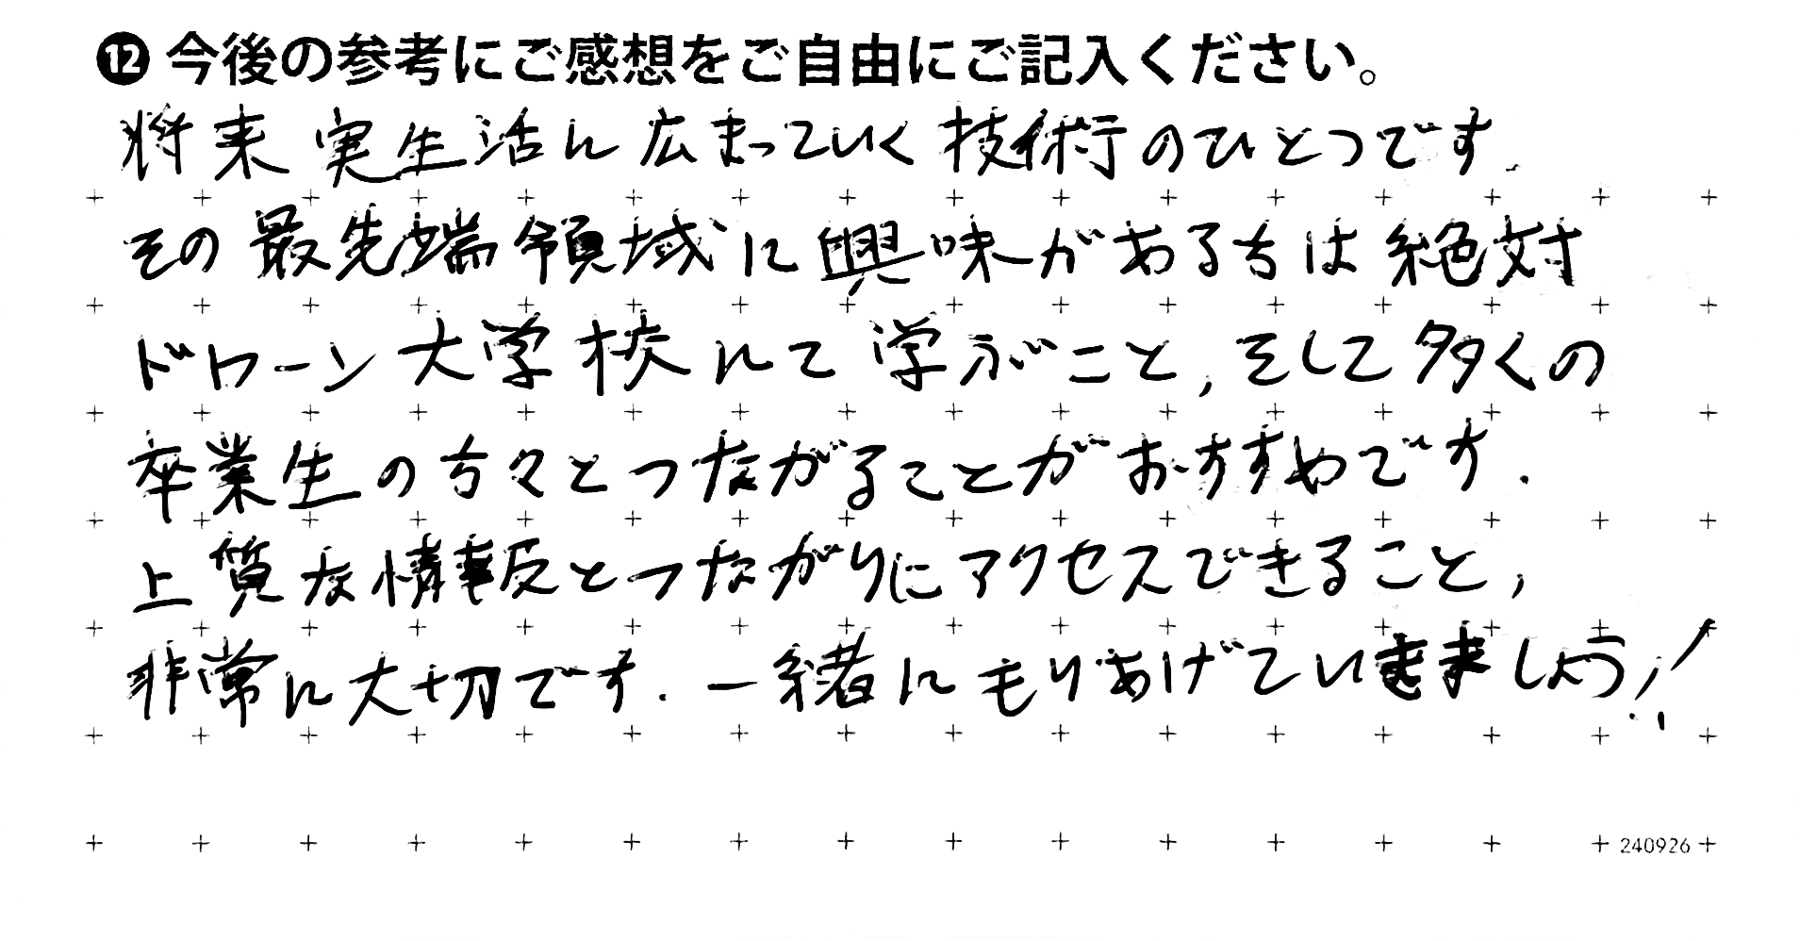 ⓬ 今後の参考にご感想をご自由にご記入ください。
将来 実生活に広まっていく技術のひとつです.
その最先端領域に興味がある方は絶対
ドローン大学校にて学ぶこと,そして多くの
卒業生の方々とつながることがおすすめです.
上質な情報とつながりにアクセスできること,
非常に大切です.一緒にもりあげていきましょう!!
240926